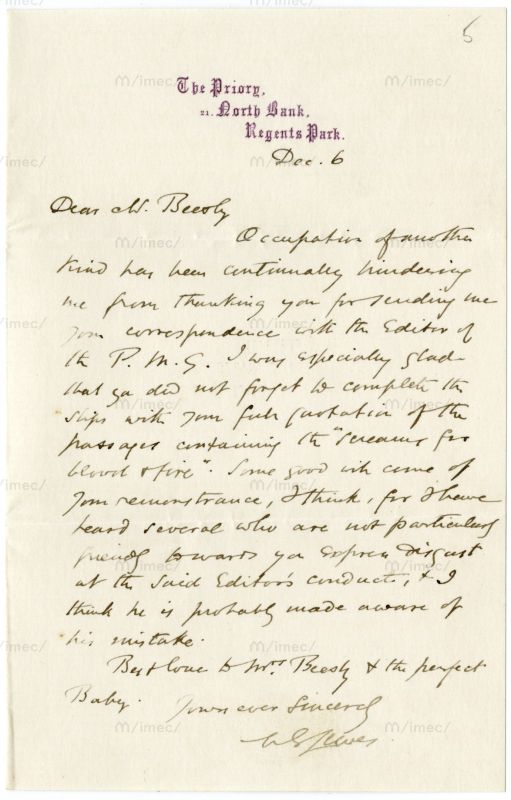 5
The Priory,
21. North Bank,
Regents Park.
Dec. 6
Dear Mr. Beesly
Occupation of another
kind has been continually hindering
me from thanking you for sending me
your correspondence with the Editor of
the P. M. G. I was especially glad
that you did not forget to complete the
with your full quotation of the
passages containing the "screams for
blood & fire". Some good will come of
your remonstrance, I think, for I have
heard several who are not particularly
friendly towards you express disgust
at the said Editor's conduct, & I
think he is probably made aware of
his mistake.
Best love to Mrs Beesly & the perfect
Baby.
Yours ever sincerely
M E Lewes.
m/imec/